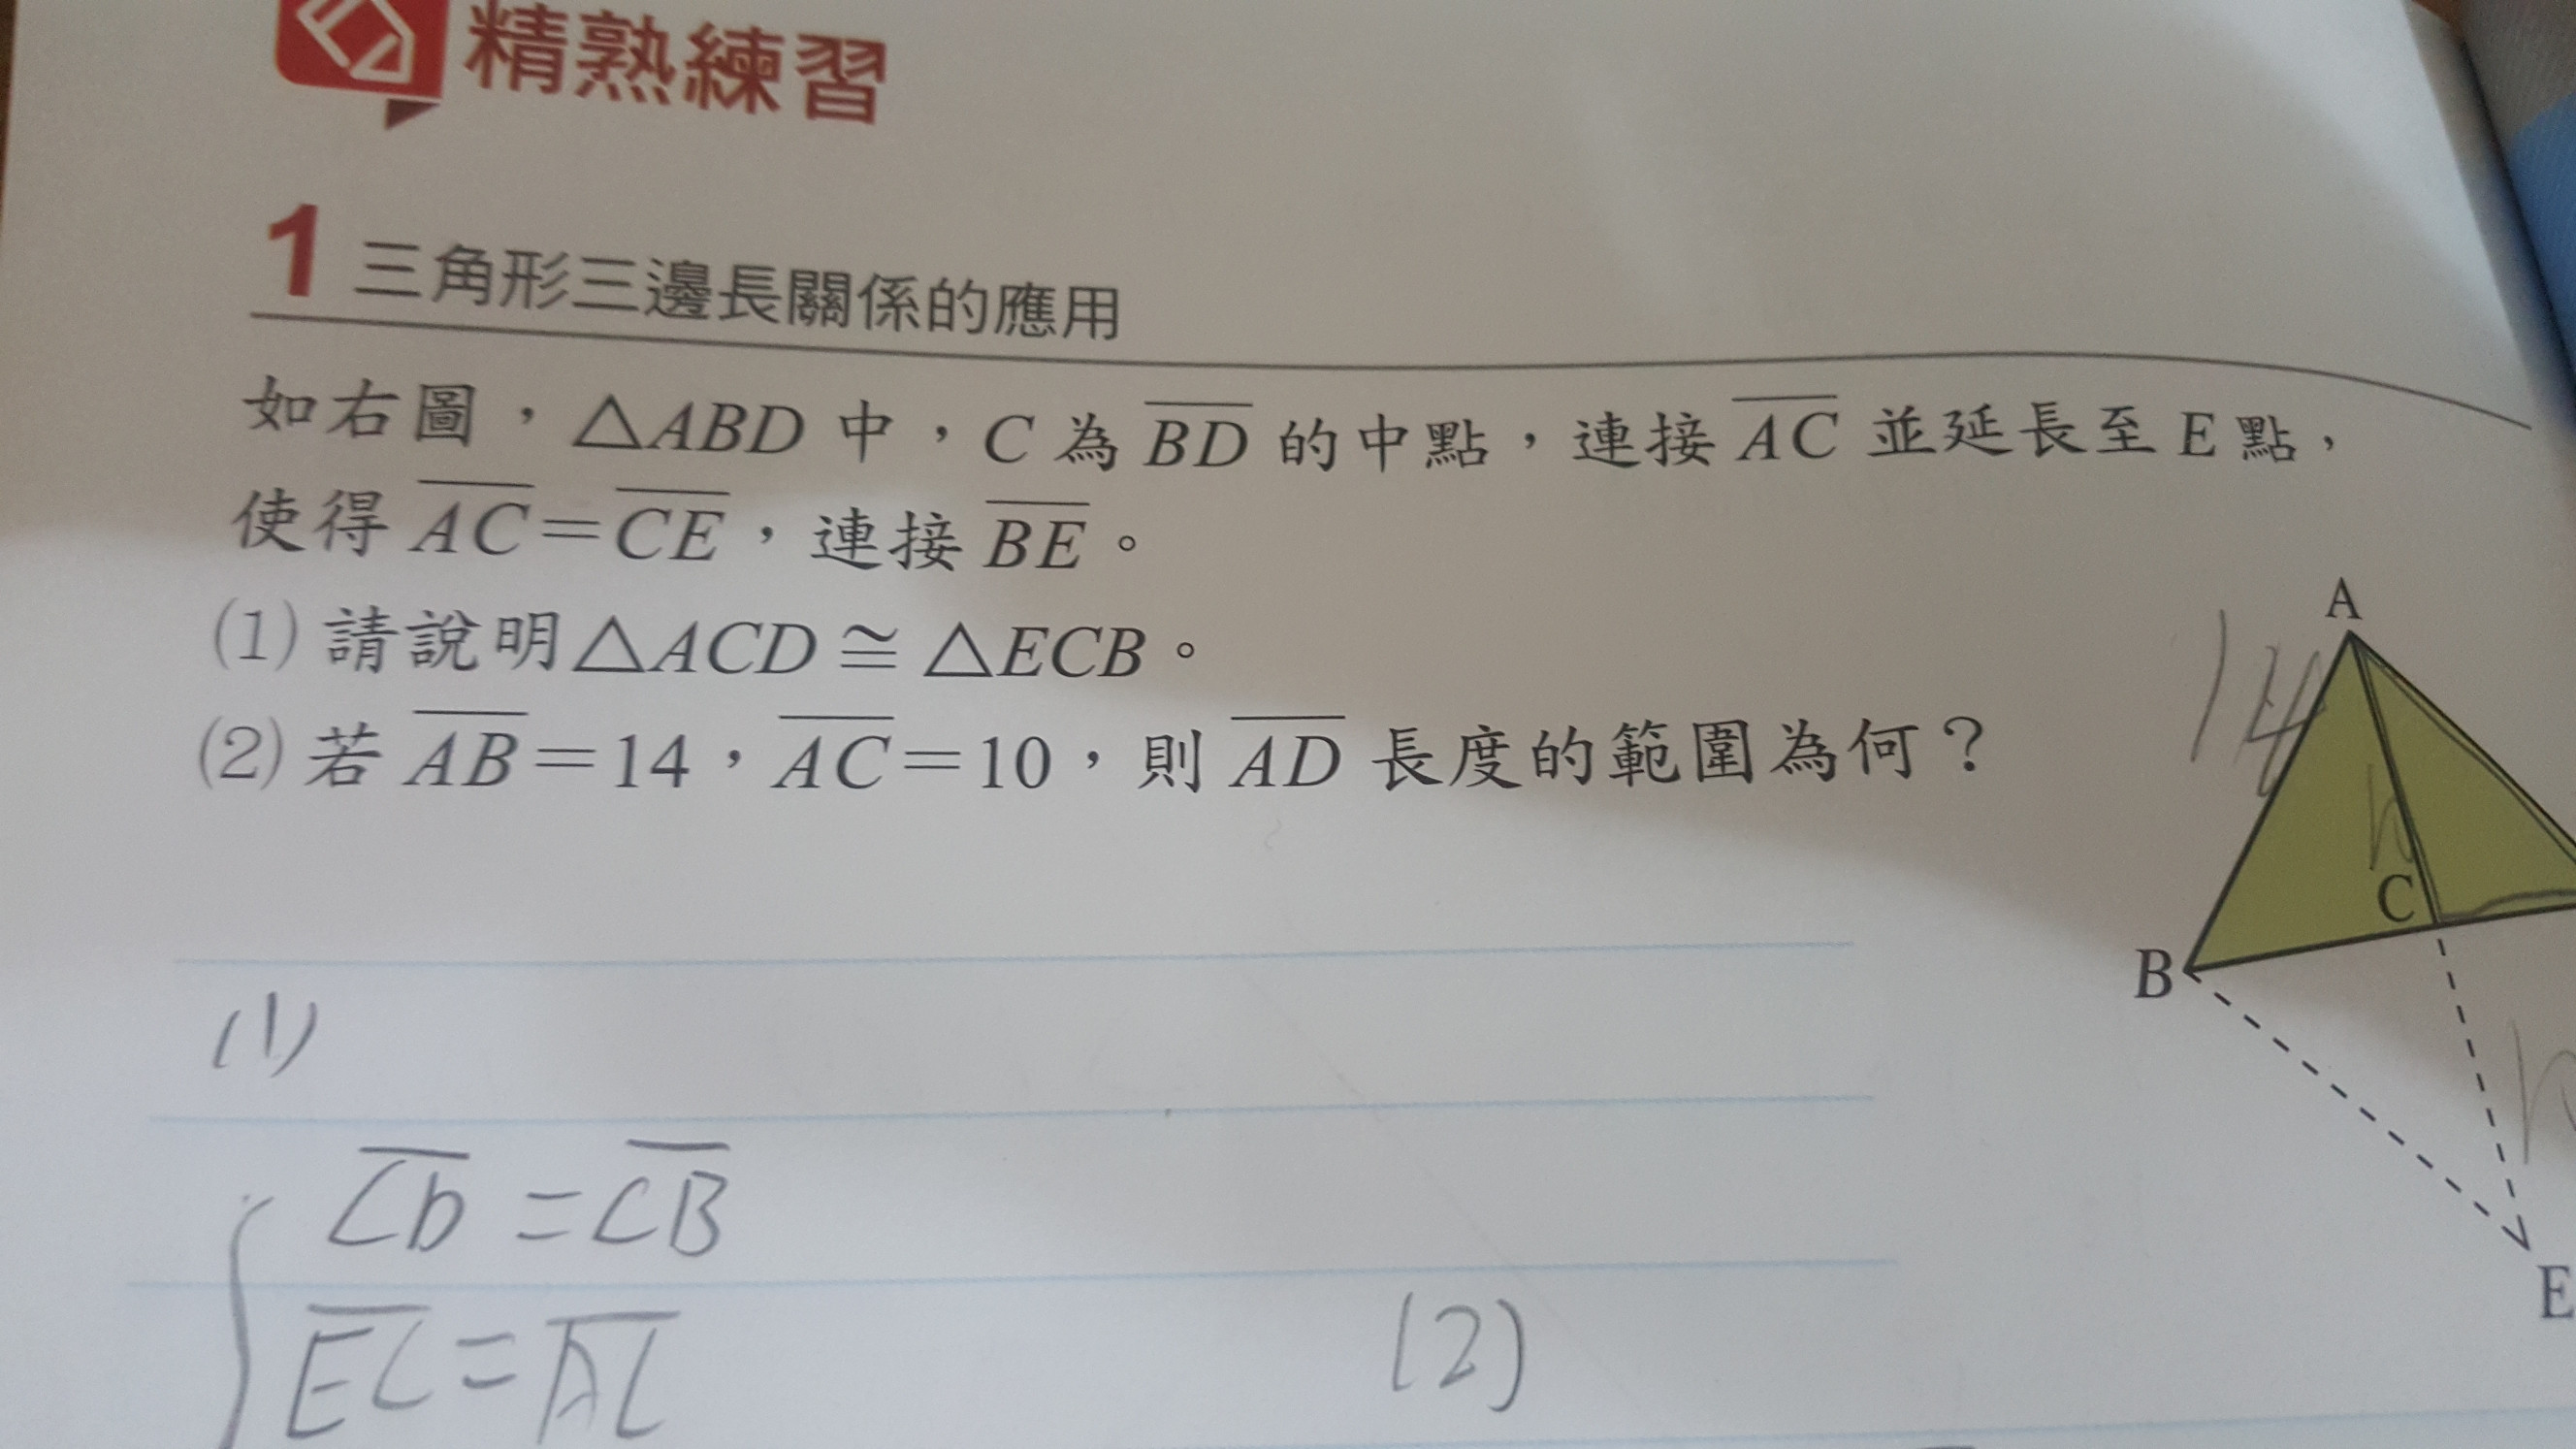 精熟練習
1 三角形三邊長關係的應用
如右圖，△ABD 中，C 為 BD 的中點，連接 AC 並延長至 E 點，
使得 AC＝CE，連接 BE。
(1) 請說明△ACD ≅ △ECB。
(2) 若 AB＝14，AC＝10，則 AD 長度的範圍為何？
A
14
C
B
E
(1)
CD = CB
EC = AC
(2)